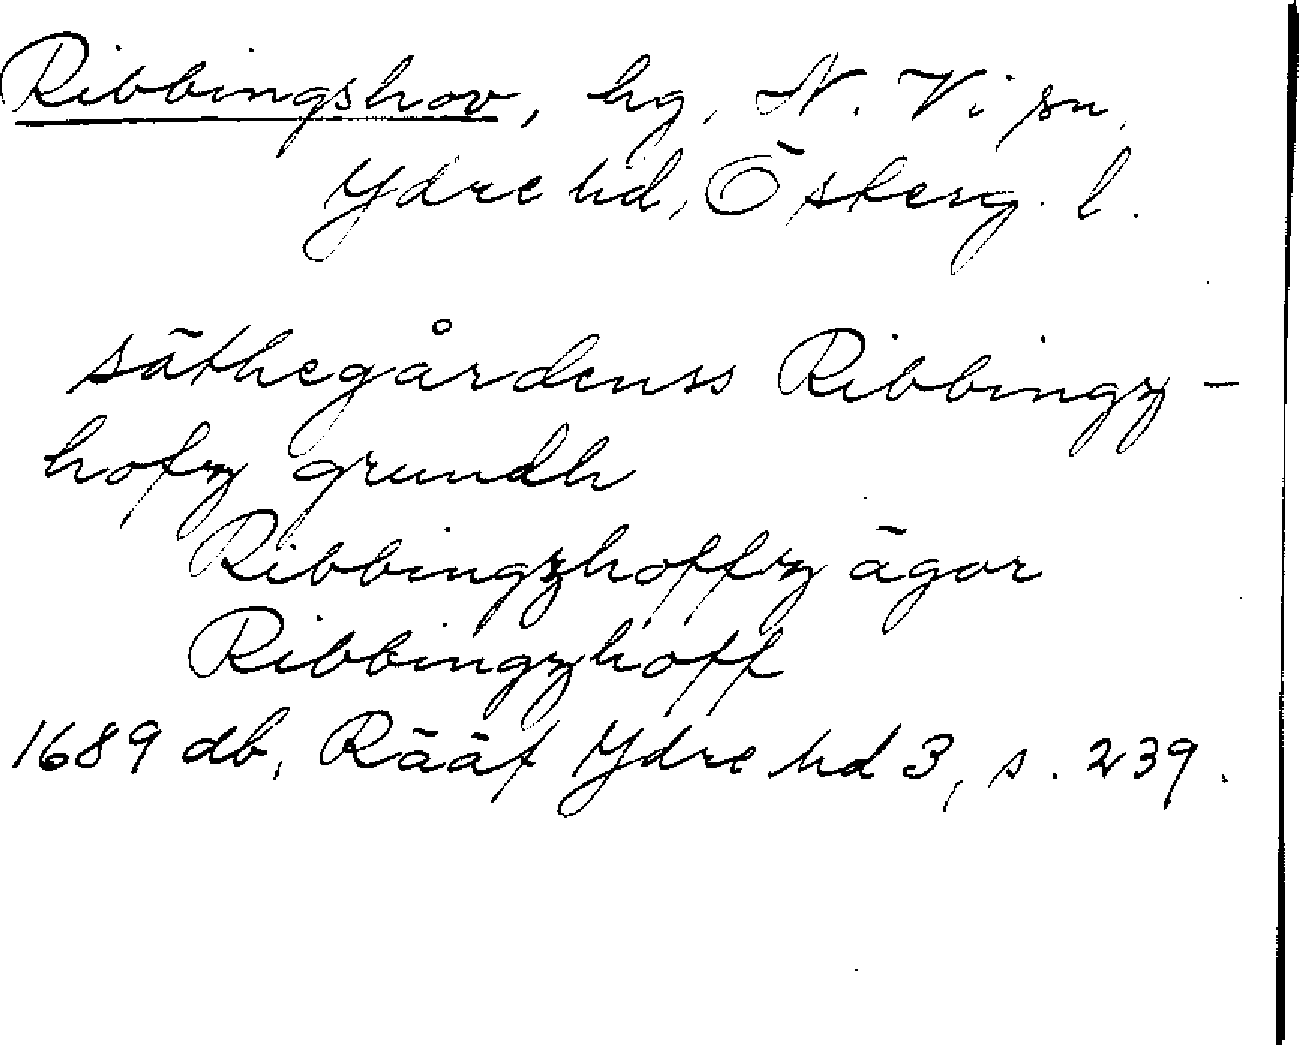 Ribbingshov, hg, N. Vi sn,
Ydre hd, Österg. l.
säthegårdenss Ribbingz-
hofz grundh
Ribbingzhoffz ägor
Ribbingzhoff
1689 db, Rääf Ydre hd 3, s. 239.